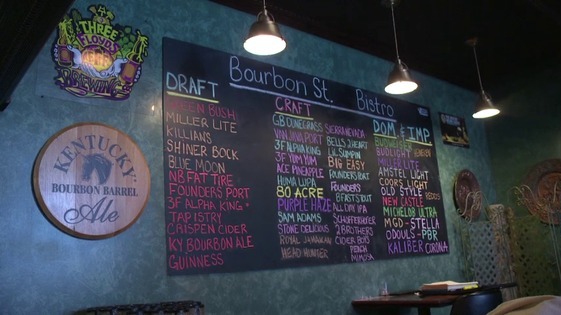 THREE
FLOYDS
BREWING
KENTUCKY
BOURBON BARREL
Ale
Bourbon St. Bistro
DRAFT
GREEN BUSH
MILLER LITE
KILLIANS
SHINER BOCK
BLUE MOON
NB FAT TIRE
FOUNDERS PORT
3F ALPHA KING
TAPISTRY
CRISPEN CIDER
KY BOURBON ALE
GUINNESS
CRAFT
GB DUNEGRASS
3F ALPHA KING
3F YUM YUM
ACE PINEAPPLE
HUMA LUCIA
80 ACRE
PURPLE HAZE
SAM ADAMS
STONE DELICIOUS
ROYAL JAMAICAN
HEAD HUNTER
SIERRA NEVADA
BELLS 2 HEART
LIL SUMPIN
BIG EASY
FOUNDERS OAT
FOUNDERS
ALL DAY IPA
SCHOFFERHOFER
2 BROTHERS
CIDER BOYS
PEACH
MIMOSA
DOM & IMP
BUDWEISER
BUDLIGHT
MILLER LITE
AMSTEL LIGHT
COORS LIGHT
OLD STYLE
NEW CASTLE
MICHELOB ULTRA
MGD - STELLA
ODOULS - PBR
KALIBER CORONA